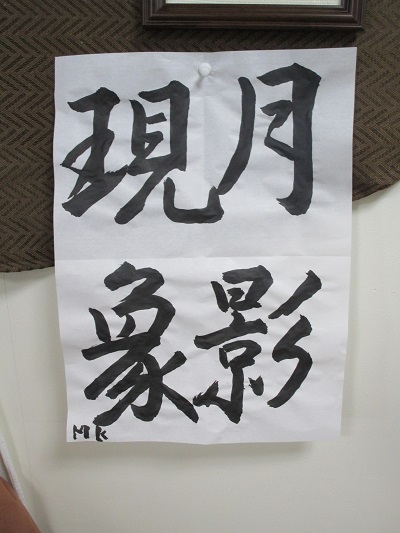 月影
現象
MK